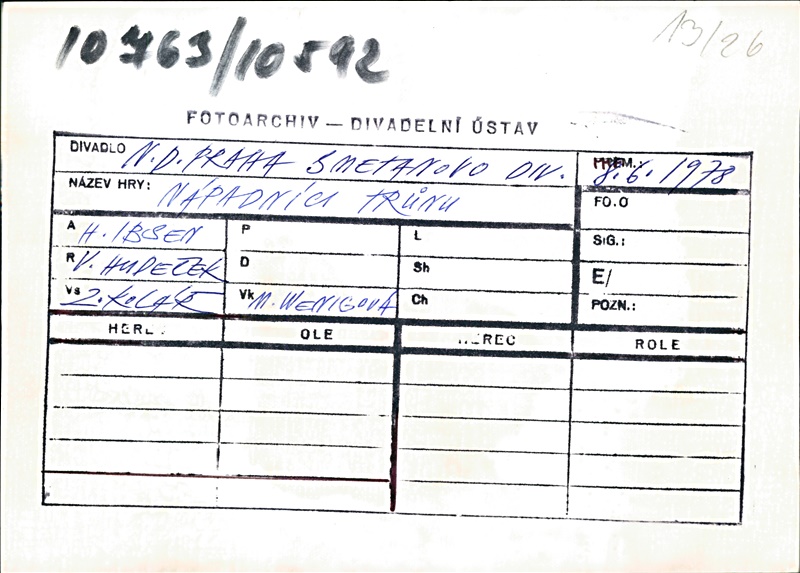 10763/10592
13/26
FOTOARCHIV — DIVADELNÍ ÚSTAV
DIVADLO N.D. PRAHA SMETANOVO DIV.
PREM.: 8.6.1978
NÁZEV HRY: NÁPADNÍCI TRŮNU
FO.O
A H. IBSEN
P
L
SIG.:
R V. HUDEČEK
D
Sh
E/
Vs Z. KOLÁŘ
Vk M. WENIGOVÁ
Ch
POZN.:
HERE
OLE
EREC
ROLE